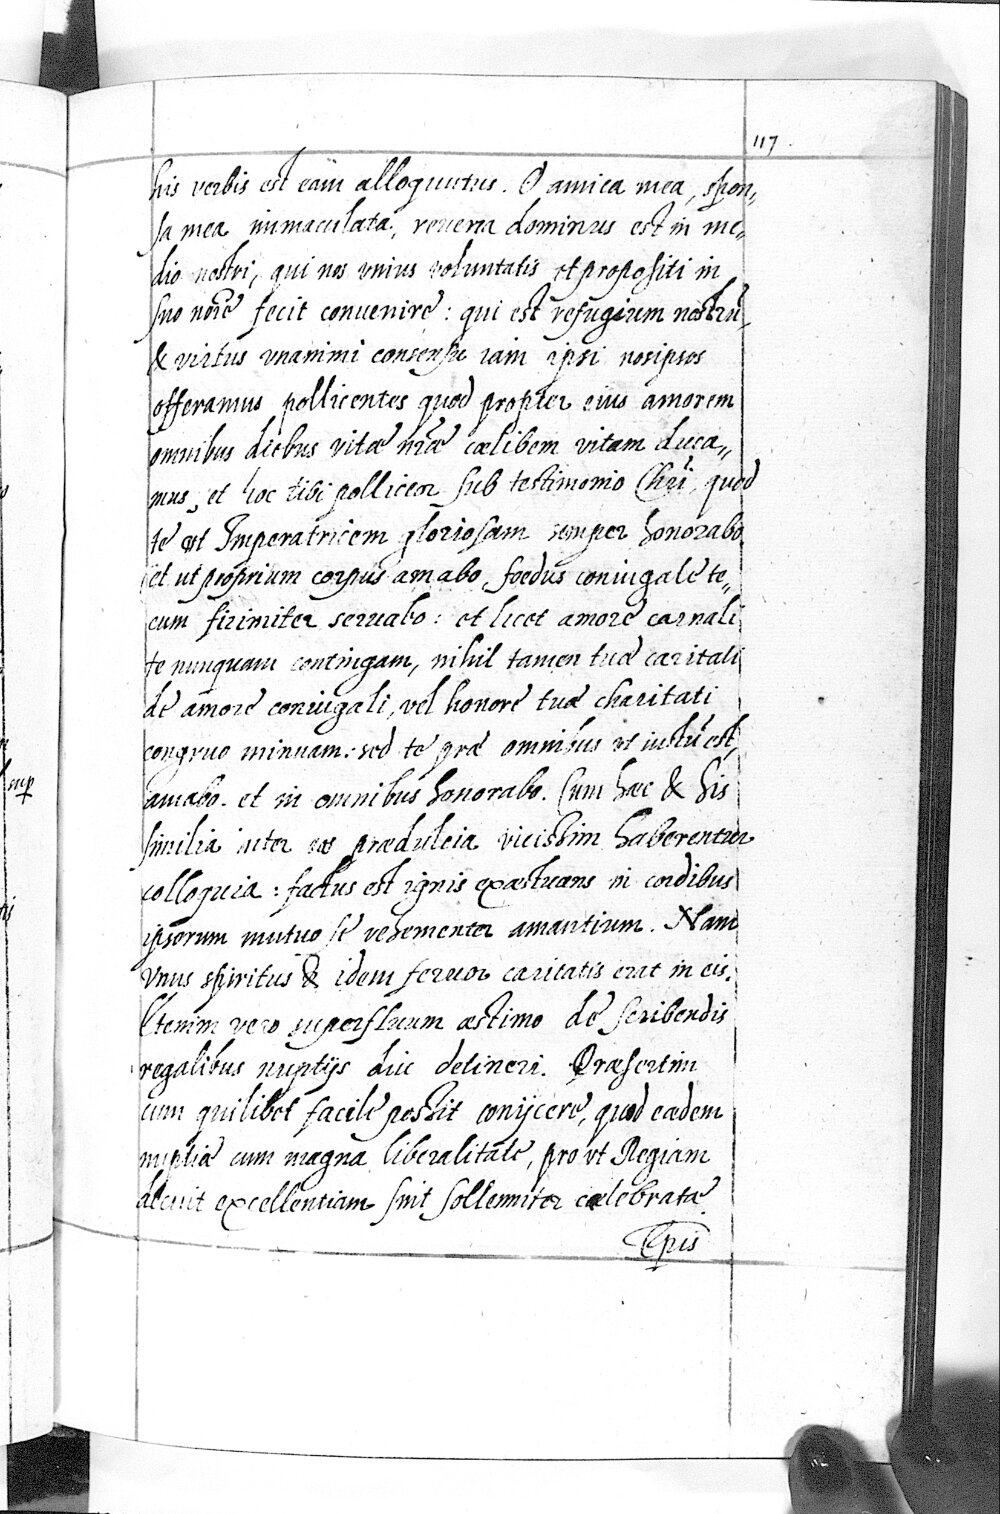 117.
his verbis est eam̄ alloquutus. O amica mea, spon„
sa mea immaculata, revera dominus est in me„
dio nostri, qui nos vnius voluntatis et propositi in
suo nōrē fecit convenire: qui est refugium nostrū,
& virtus vnanimi consensu iam ipsi nosipsos
offeramus pollicentes quod propter eius amorem
omnibus diebus vitæ nr̄æ cælibem vitam duca„
mus, et hoc tibi polliceor sub testimonio Chr̄i, quod
te ut Imperatricem gloriosam semper honorabo
et ut proprium corpus amabo, foedus coniugale te„
cum firimiter seruabo: et licet amore carnali
te nunquam contingam, nihil tamen tuæ caritati
de amore coniugali, vel honore tuæ charitati
congruo minuam: sed te præ omnibus vt iustū est,
amabo. et in omnibus honorabo. Cum hæc & his
similia inter eos prædulcia vicissim haberentur
colloquia: factus est ignis exæstuans in cordibus
ipsorum mutuo se vehementer amantium. Nam
vnus spiritus & idem feruor caritatis erat in eis.
Etenim vero superfluum æstimo de scribendis
regalibus nuptijs diu detineri. Præsertim
cum quilibet facile possit conijcere, quod eædem
nuptiæ cum magna liberalitate, pro vt Regiam
decuit excellentiam sint sollemniter cælebratæ.
Epis
mp